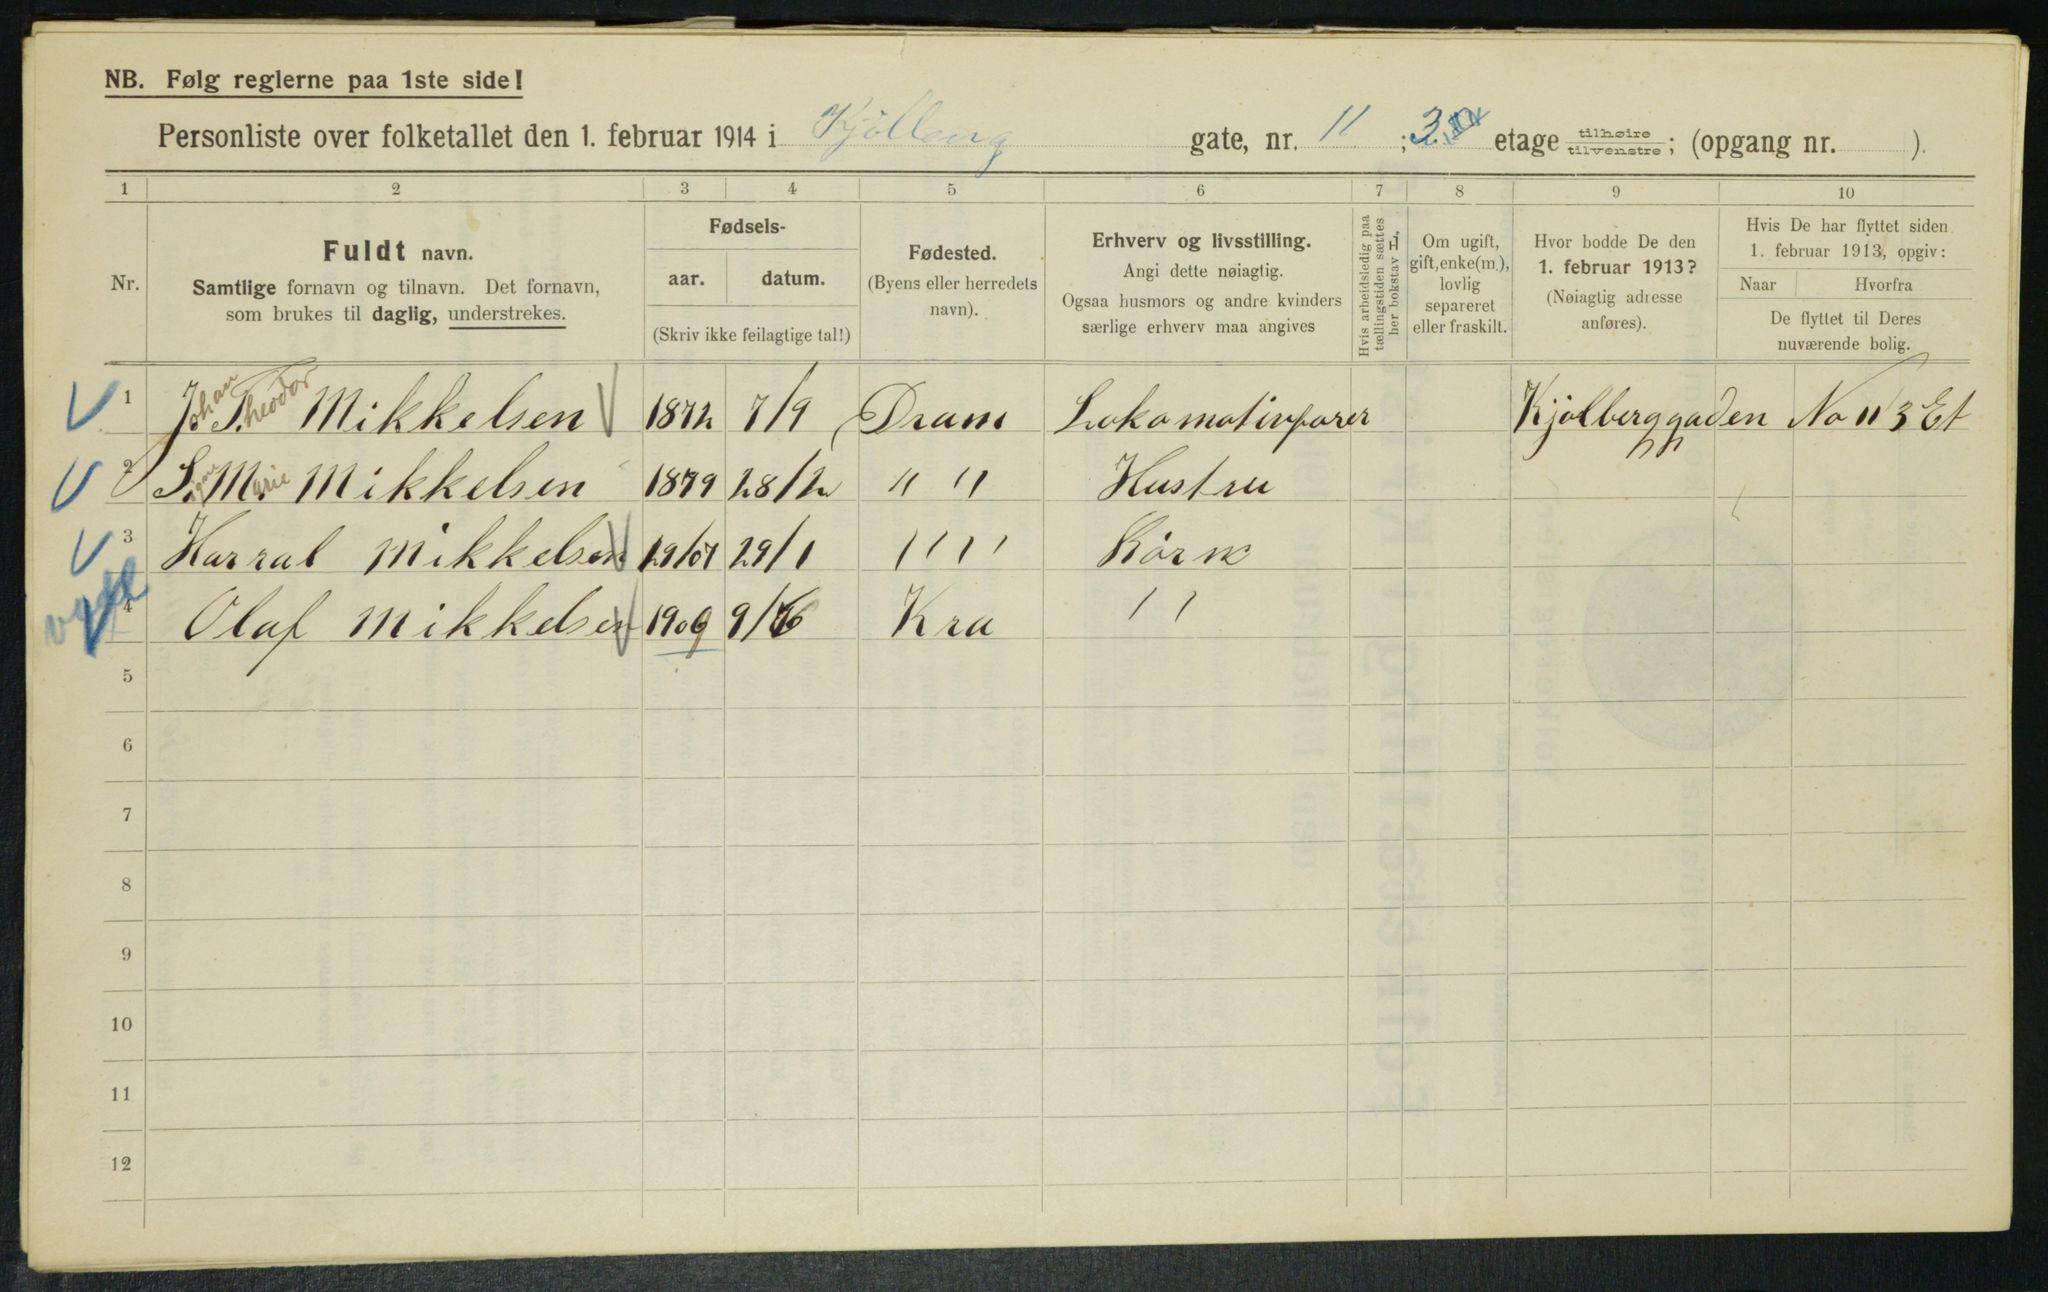 NB. Følg reglerne paa 1ste side!
Personliste over folketallet den 1. februar 1914 i Kjølberg gate, nr. 11 ; 3. etage tilhøire tilvenstre ; (opgang nr. ).
1 2 3 4 5 6 7 8 9 10
Nr.
Fuldt navn.
Samtlige fornavn og tilnavn. Det fornavn,
som brukes til daglig, understrekes.
Fødsels-
aar. datum.
(Skriv ikke feilagtige tal!)
Fødested.
(Byens eller herredets
navn).
Erhverv og livsstilling.
Angi dette nøiagtig.
Ogsaa husmors og andre kvinders
særlige erhverv maa angives
Hvis arbeidsledig paa
tællingstiden sættes
her bokstav L.
Om ugift,
gift, enke(m.),
lovlig
separeret
eller fraskilt.
Hvor bodde De den
1. februar 1913?
(Nøiagtig adresse
anføres).
Hvis De har flyttet siden
1. februar 1913, opgiv:
Naar Hvorfra
De flyttet til Deres
nuværende bolig.
1 Johan Theodor Mikkelsen 1872 7/9 Dram Lokomotivfører Kjølberggaden No 11 3 Et
2 Signe Marie Mikkelsen 1879 28/2 " " Hustru
3 Harral Mikkelsen 19/07 29/1 " " Børn
4 Olaf Mikkelsen 1909 9/6 Kra " "
5
6
7
8
9
10
11
12